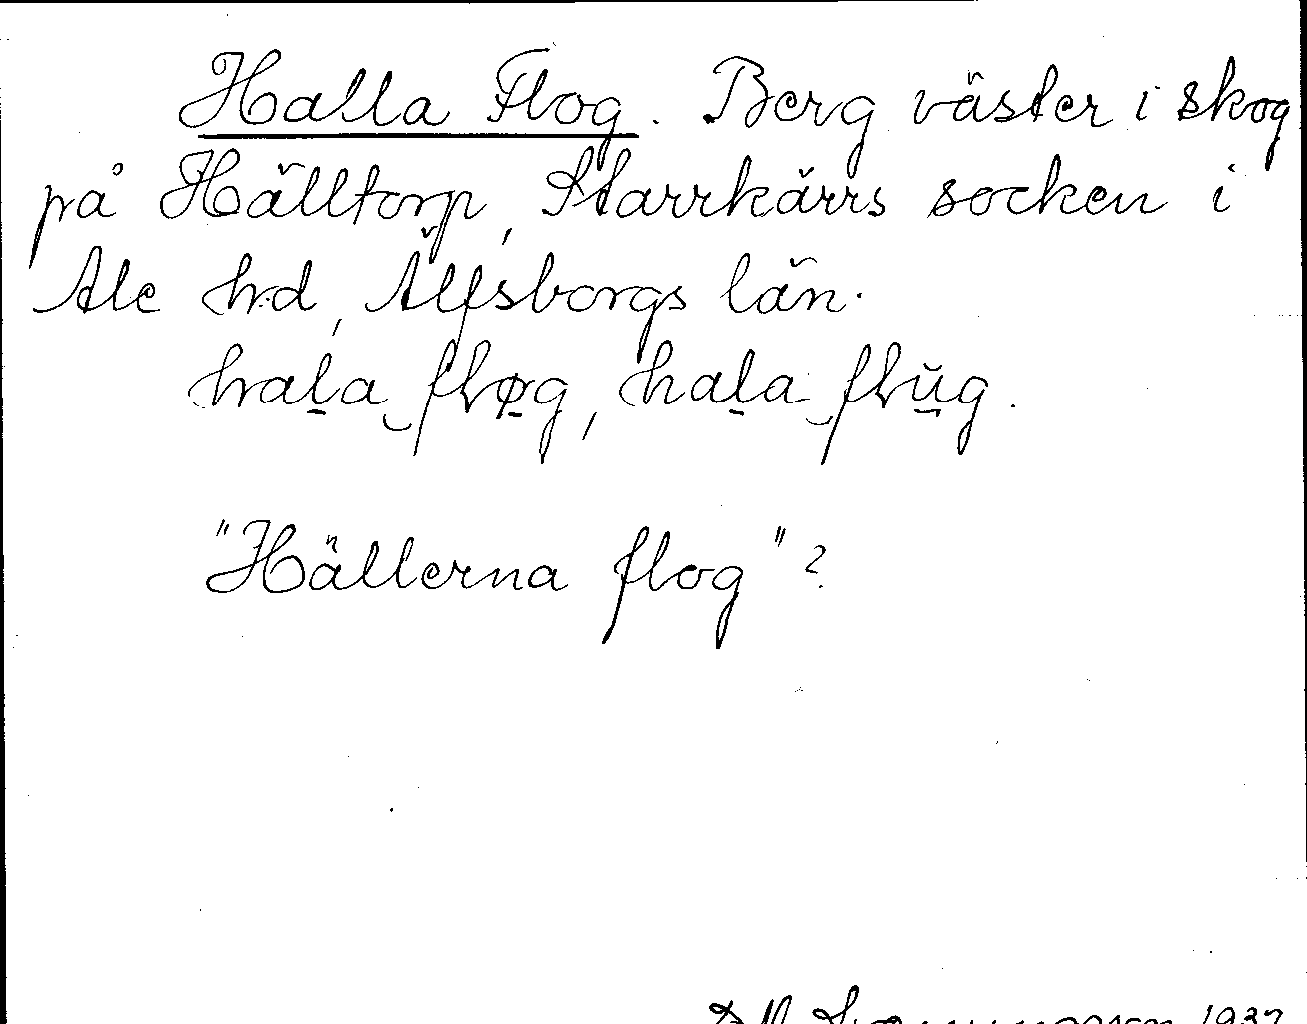 Halla Flog. Berg väster i skog
på Hälltorp, Starrkärrs socken i
Ale hd, Älfsborgs län.
hal̠a‿flø̠g, hal̠a‿flŭ̠g.
"Hällerna flog"?
1937